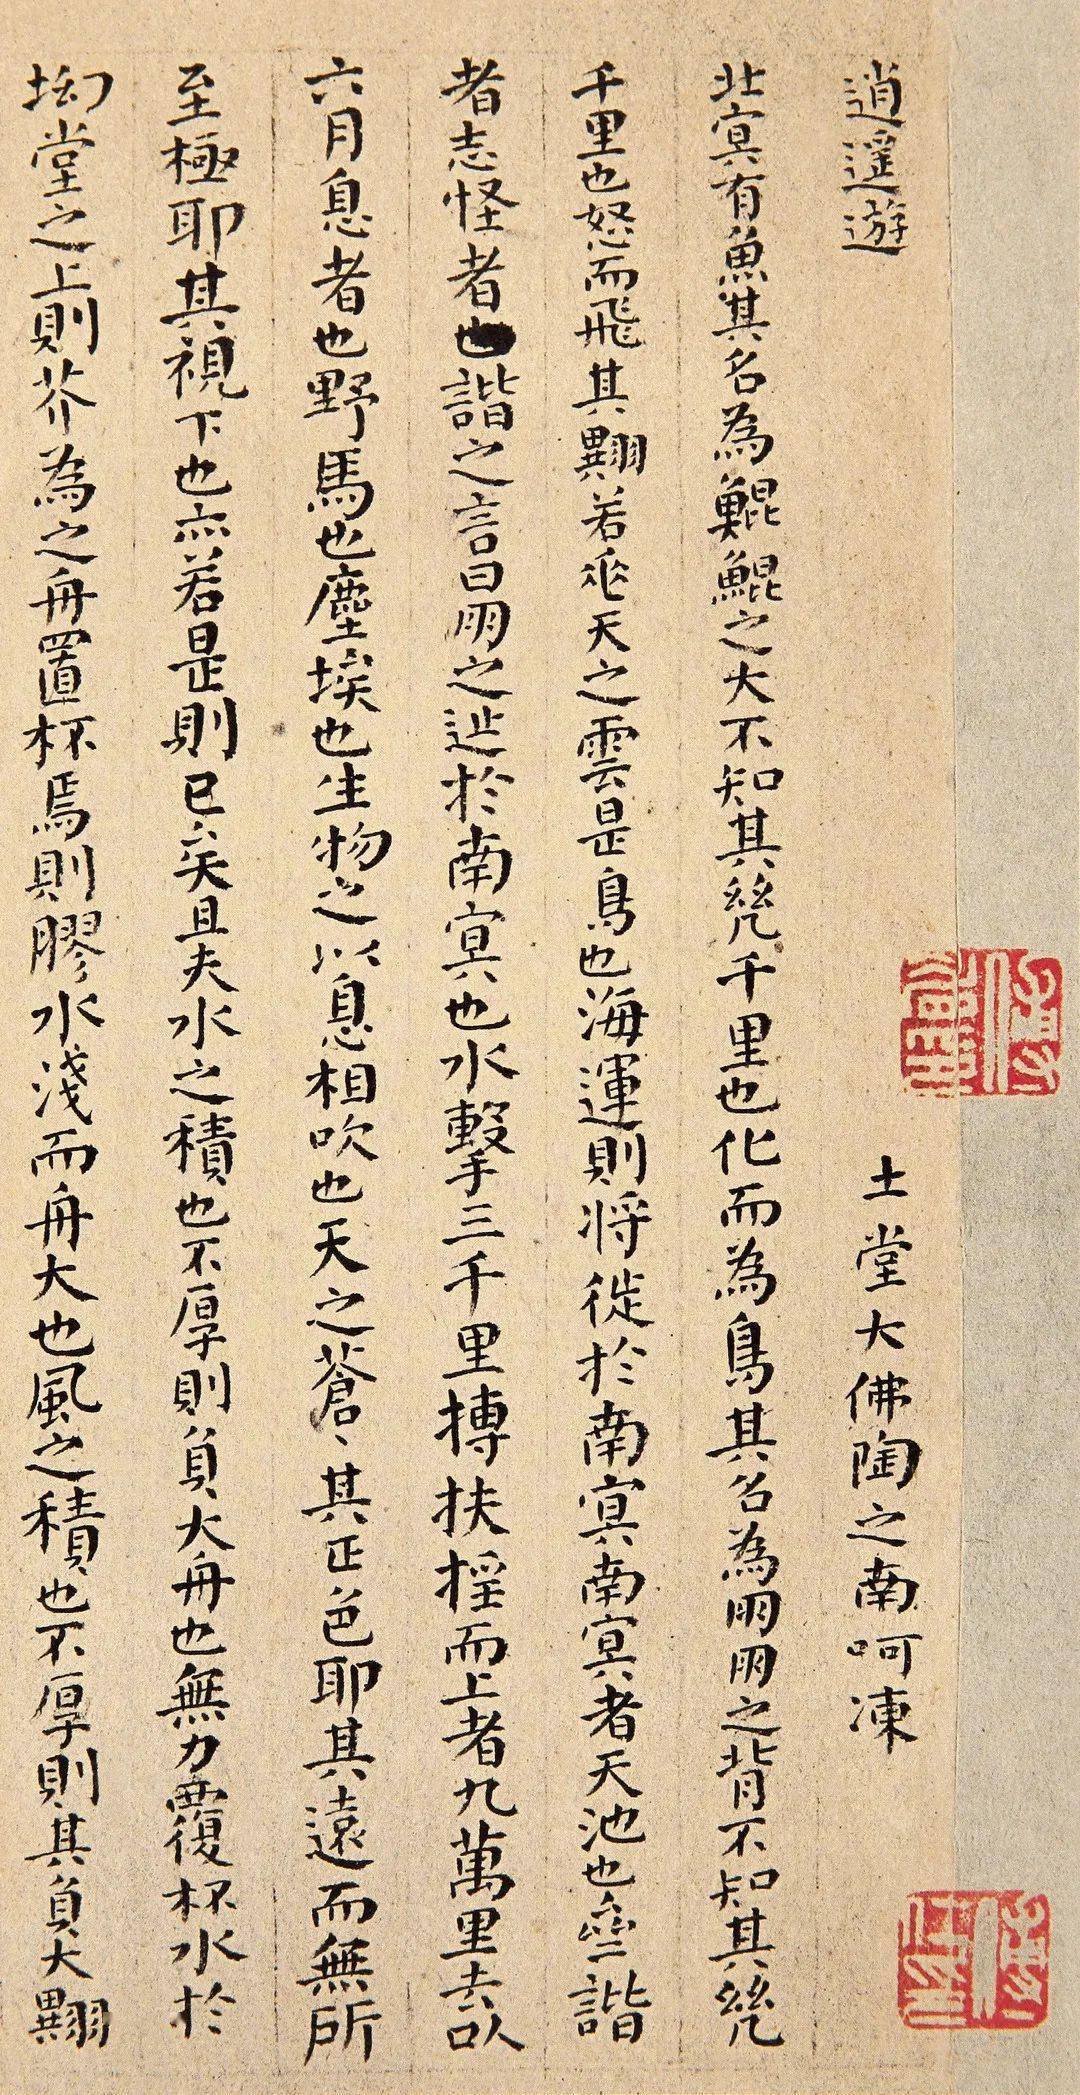 逍遥遊
土堂大佛陶之南呵凍
北冥有魚其名為鯤鯤之大不知其幾千里也化而為鳥其名為朋朋之背不知其幾
千里也怒而飛其翼若垂天之雲是鳥也海運則将徙於南冥南冥者天池也齊諧
者志怪者也諧之言曰朋之逆於南冥也水擊三千里摶扶揺而上者九萬里去以
六月息者也野馬也塵埃也生物之以息相吹也天之蒼〻其正色耶其遠而無所
至極耶其視下也亦若是則已矣且夫水之積也不厚則負大舟也無力覆杯水於
坳堂之上則芥為之舟置杯焉則膠水淺而舟大也風之積也不厚則其負大翼